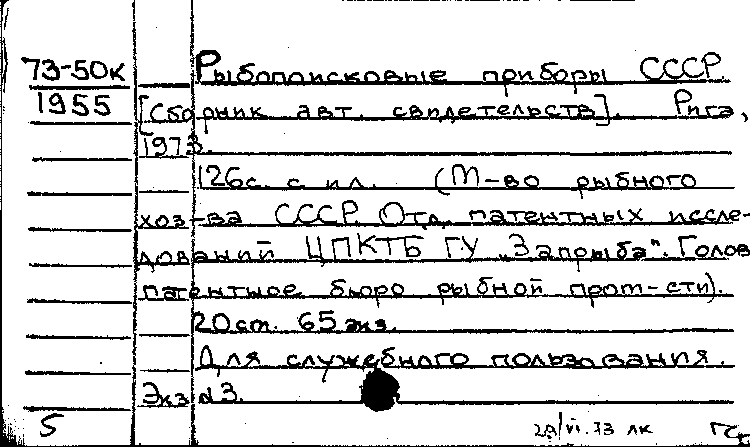 73-50к Рыбопоисковые приборы СССР.
1955 [Сборник авт. свидетельств]. Рига,
1973.
126с. с ил. (М-во рыбного
хоз-ва СССР. Отд. патентных иссле-
дований ЦПКТБ ГУ „Запрыба". Голов
патентное бюро рыбной пром-сти).
20см. 65 экз.
Для служебного пользования.
Экз 3.
5 VI.73 лк